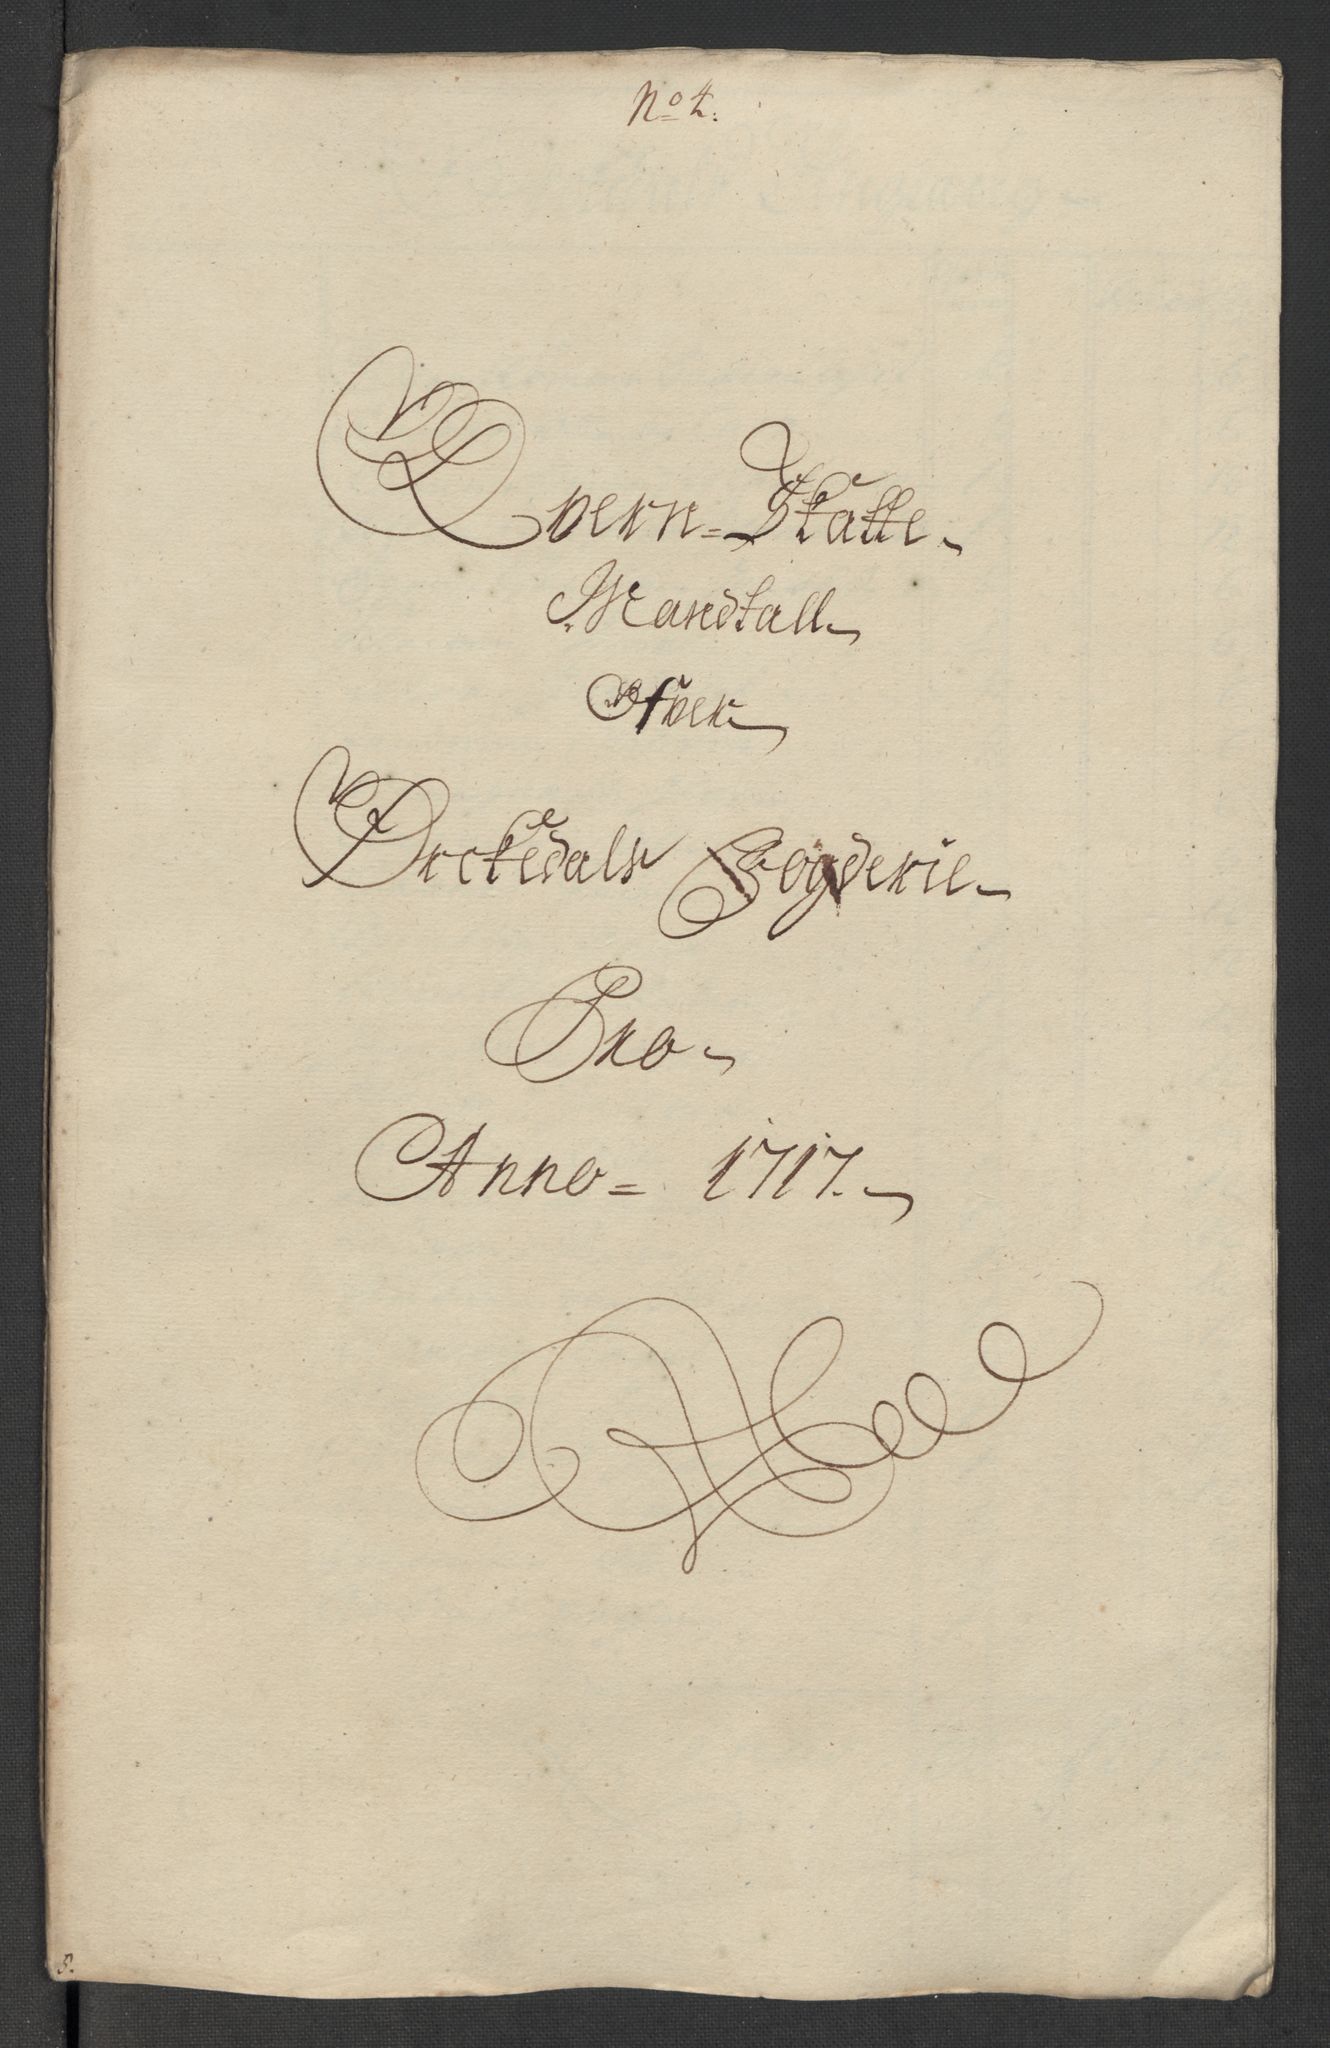 No 4.
Qvern=Skatte
Mandtall
Ofver
Orckedals Fogderie
Pro
Anno= 1717.
5.